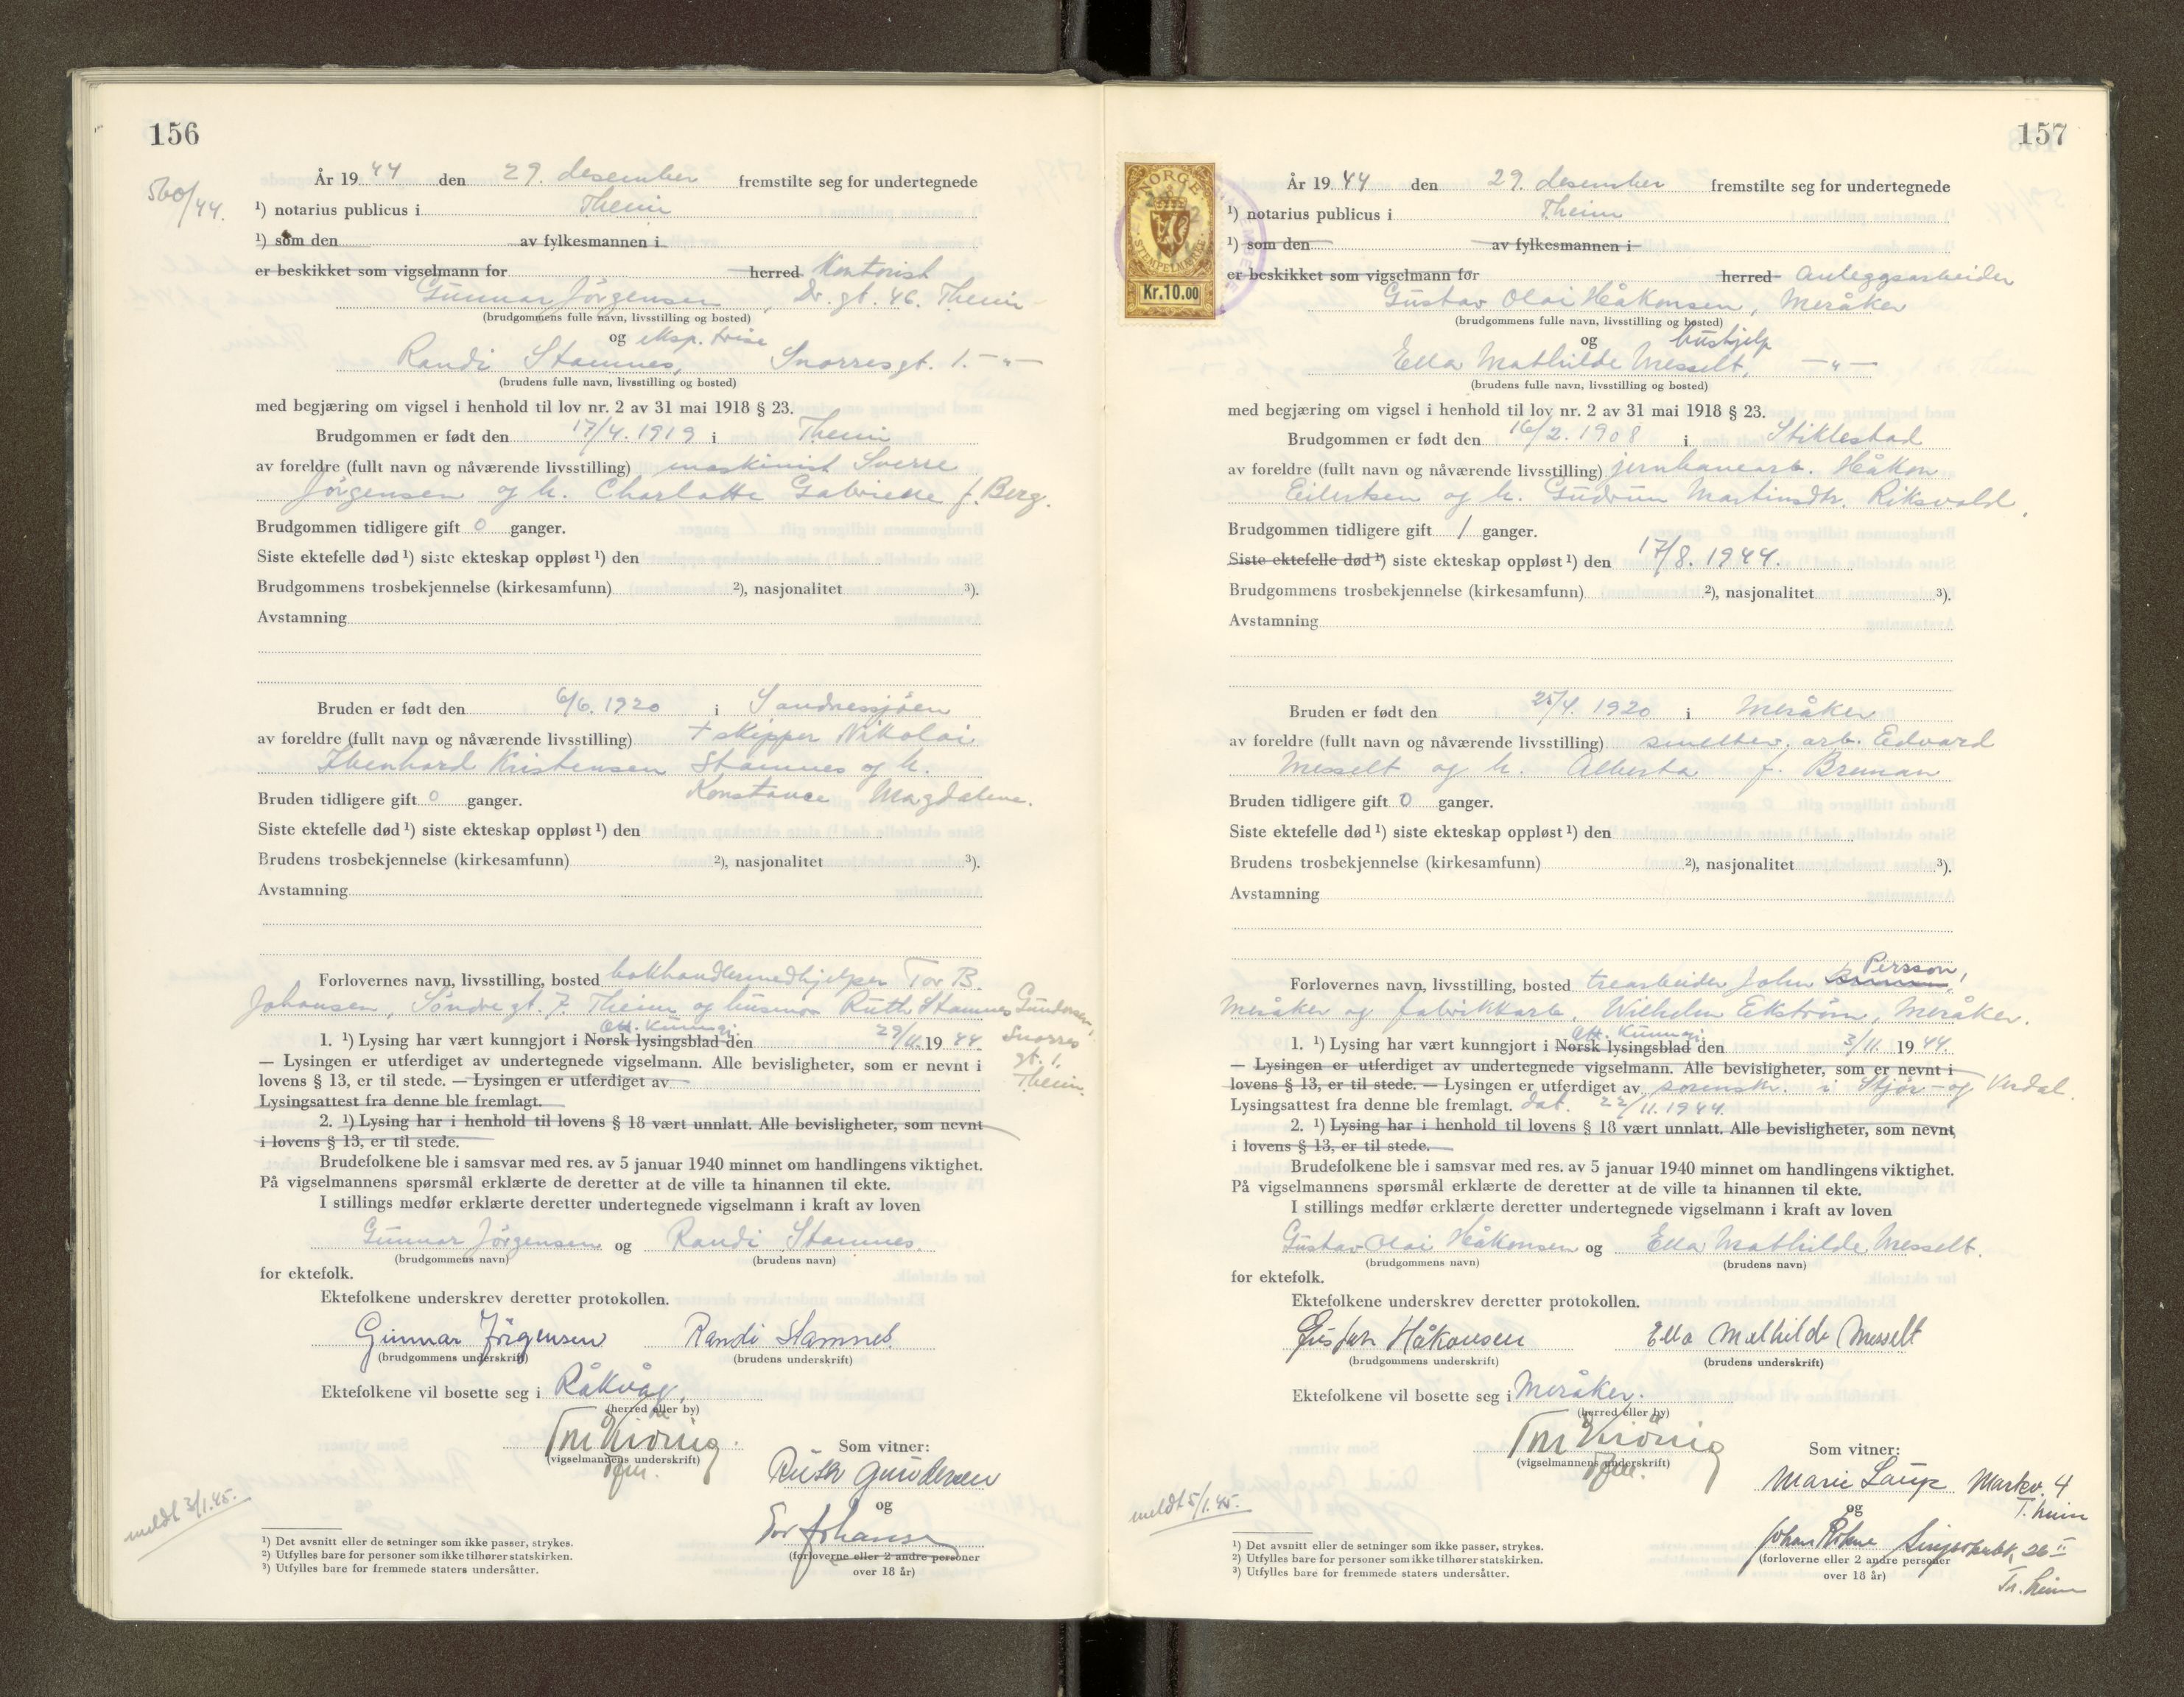 156
560/44.
År 1944 den 29. desember fremstilte seg for undertegnede
¹) notarius publicus i Theim
¹) som den av fylkesmannen i
er beskikket som vigselmann for herred Kontorist
Gunnar Jörgensen, Dr. gt. 46. Theim
(brudgommens fulle navn, livsstilling og bosted)
og eksp. trise
Randi Stamnes, Snorresgt. 1. -"-
(brudens fulle navn, livsstilling og bosted)
med begjæring om vigsel i henhold til lov nr. 2 av 31 mai 1918 § 23.
Brudgommen er født den 17/4. 1919 i Theim
av foreldre (fullt navn og nåværende livsstilling) maskinist Sverre
Jörgensen og h. Charlotte Gabrielle f. Berg.
Brudgommen tidligere gift 0 ganger.
Siste ektefelle død ¹) siste ekteskap oppløst ¹) den
Brudgommens trosbekjennelse (kirkesamfunn) ²), nasjonalitet ³).
Avstamning
Bruden er født den 6/6. 1920 i Sandnessjöen
av foreldre (fullt navn og nåværende livsstilling) + skipper Nikolai
Ebenhard Kristensen Stamnes og h.
Konstance Magdalene.
Bruden tidligere gift 0 ganger.
Siste ektefelle død ¹) siste ekteskap oppløst ¹) den
Brudens trosbekjennelse (kirkesamfunn) ²), nasjonalitet ³).
Avstamning
Forlovernes navn, livsstilling, bosted bokhandlermedhjelper Tor B.
Johansen, Söndregt. 7. Theim og husmor Ruth Stamnes Gundersen,
Snorres
gt. 1.
Theim.
Off. Kunngj.
1. ¹) Lysing har vært kunngjort i Norsk lysingsblad den 29/11. 1944.
— Lysingen er utferdiget av undertegnede vigselmann. Alle bevisligheter, som er nevnt i
lovens § 13, er til stede. — Lysingen er utferdiget av
Lysingsattest fra denne ble fremlagt.
2. ¹) Lysing har i henhold til lovens § 18 vært unnlatt. Alle bevisligheter, som nevnt
i lovens § 13, er til stede.
Brudefolkene ble i samsvar med res. av 5 januar 1940 minnet om handlingens viktighet.
På vigselmannens spørsmål erklærte de deretter at de ville ta hinannen til ekte.
I stillings medfør erklærte deretter undertegnede vigselmann i kraft av loven
Gunnar Jörgensen og Randi Stamnes.
(brudgommens navn) (brudens navn)
for ektefolk.
Ektefolkene underskrev deretter protokollen.
Gunnar Jörgensen Randi Stamnes.
(brudgommens underskrift) (brudens underskrift)
Ektefolkene vil bosette seg i Råkvåg,
(herred eller by)
(vigselmannens underskrift)
Som vitner:
Ruth Gundersen
og
Tor Johansen
(forloverne eller 2 andre personer
over 18 år)
meldt 3/1.45.
¹) Det avsnitt eller de setninger som ikke passer, strykes.
²) Utfylles bare for personer som ikke tilhører statskirken.
³) Utfylles bare for fremmede staters undersåtter.
157
NORGE
STEMPELMERKE
Kr.10.00
År 1944 den 29. desember fremstilte seg for undertegnede
¹) notarius publicus i Theim
¹) som den av fylkesmannen i
er beskikket som vigselmann for herred anleggsarbeider
Gustav Olai Håkonsen, Meråker
(brudgommens fulle navn, livsstilling og bosted)
og hushjelp
Ella Mathilde Messelt, -"-
(brudens fulle navn, livsstilling og bosted)
med begjæring om vigsel i henhold til lov nr. 2 av 31 mai 1918 § 23.
Brudgommen er født den 16/2. 1908 i Stiklestad
av foreldre (fullt navn og nåværende livsstilling) jernbanearb. Håkon
Eilertsen og h. Gudrun Martinsdtr. Riksvold.
Brudgommen tidligere gift 1 ganger.
Siste ektefelle død ¹) siste ekteskap oppløst ¹) den 17/8. 1944.
Brudgommens trosbekjennelse (kirkesamfunn) ²), nasjonalitet ³).
Avstamning
Bruden er født den 25/4. 1920 i Meråker
av foreldre (fullt navn og nåværende livsstilling) smeltev. arb. Edvard
Messelt og h. Alberta f. Breman
Bruden tidligere gift 0 ganger.
Siste ektefelle død ¹) siste ekteskap oppløst ¹) den
Brudens trosbekjennelse (kirkesamfunn) ²), nasjonalitet ³).
Avstamning
Forlovernes navn, livsstilling, bosted trearbeider John Persson,
Meråker og fabrikkarb. Wilhelm Ekström, Meråker.
Off. Kunngj.
1. ¹) Lysing har vært kunngjort i Norsk lysingsblad den 3/11. 1944.
— Lysingen er utferdiget av undertegnede vigselmann. Alle bevisligheter, som er nevnt i
lovens § 13, er til stede. — Lysingen er utferdiget av sorenskr. i Stjør- og Verdal.
Lysingsattest fra denne ble fremlagt. dat. 22/11. 1944.
2. ¹) Lysing har i henhold til lovens § 18 vært unnlatt. Alle bevisligheter, som nevnt,
i lovens § 13, er til stede.
Brudefolkene ble i samsvar med res. av 5 januar 1940 minnet om handlingens viktighet.
På vigselmannens spørsmål erklærte de deretter at de ville ta hinannen til ekte.
I stillings medfør erklærte deretter undertegnede vigselmann i kraft av loven
Gustav Olai Håkonsen og Ella Mathilde Messelt.
(brudgommens navn) (brudens navn)
for ektefolk.
Ektefolkene underskrev deretter protokollen.
Gustav Håkonsen Ella Mathilde Messelt
(brudgommens underskrift) (brudens underskrift)
Ektefolkene vil bosette seg i Meråker.
(herred eller by)
(vigselmannens underskrift)
Som vitner:
Marie Laup Markv. 4
T.heim
og
Johan 26 II
(forloverne eller 2 andre personer
over 18 år)
Tr.heim
meldt 5/1.45.
¹) Det avsnitt eller de setninger som ikke passer, strykes.
²) Utfylles bare for personer som ikke tilhører statskirken.
³) Utfylles bare for fremmede staters undersåtter.